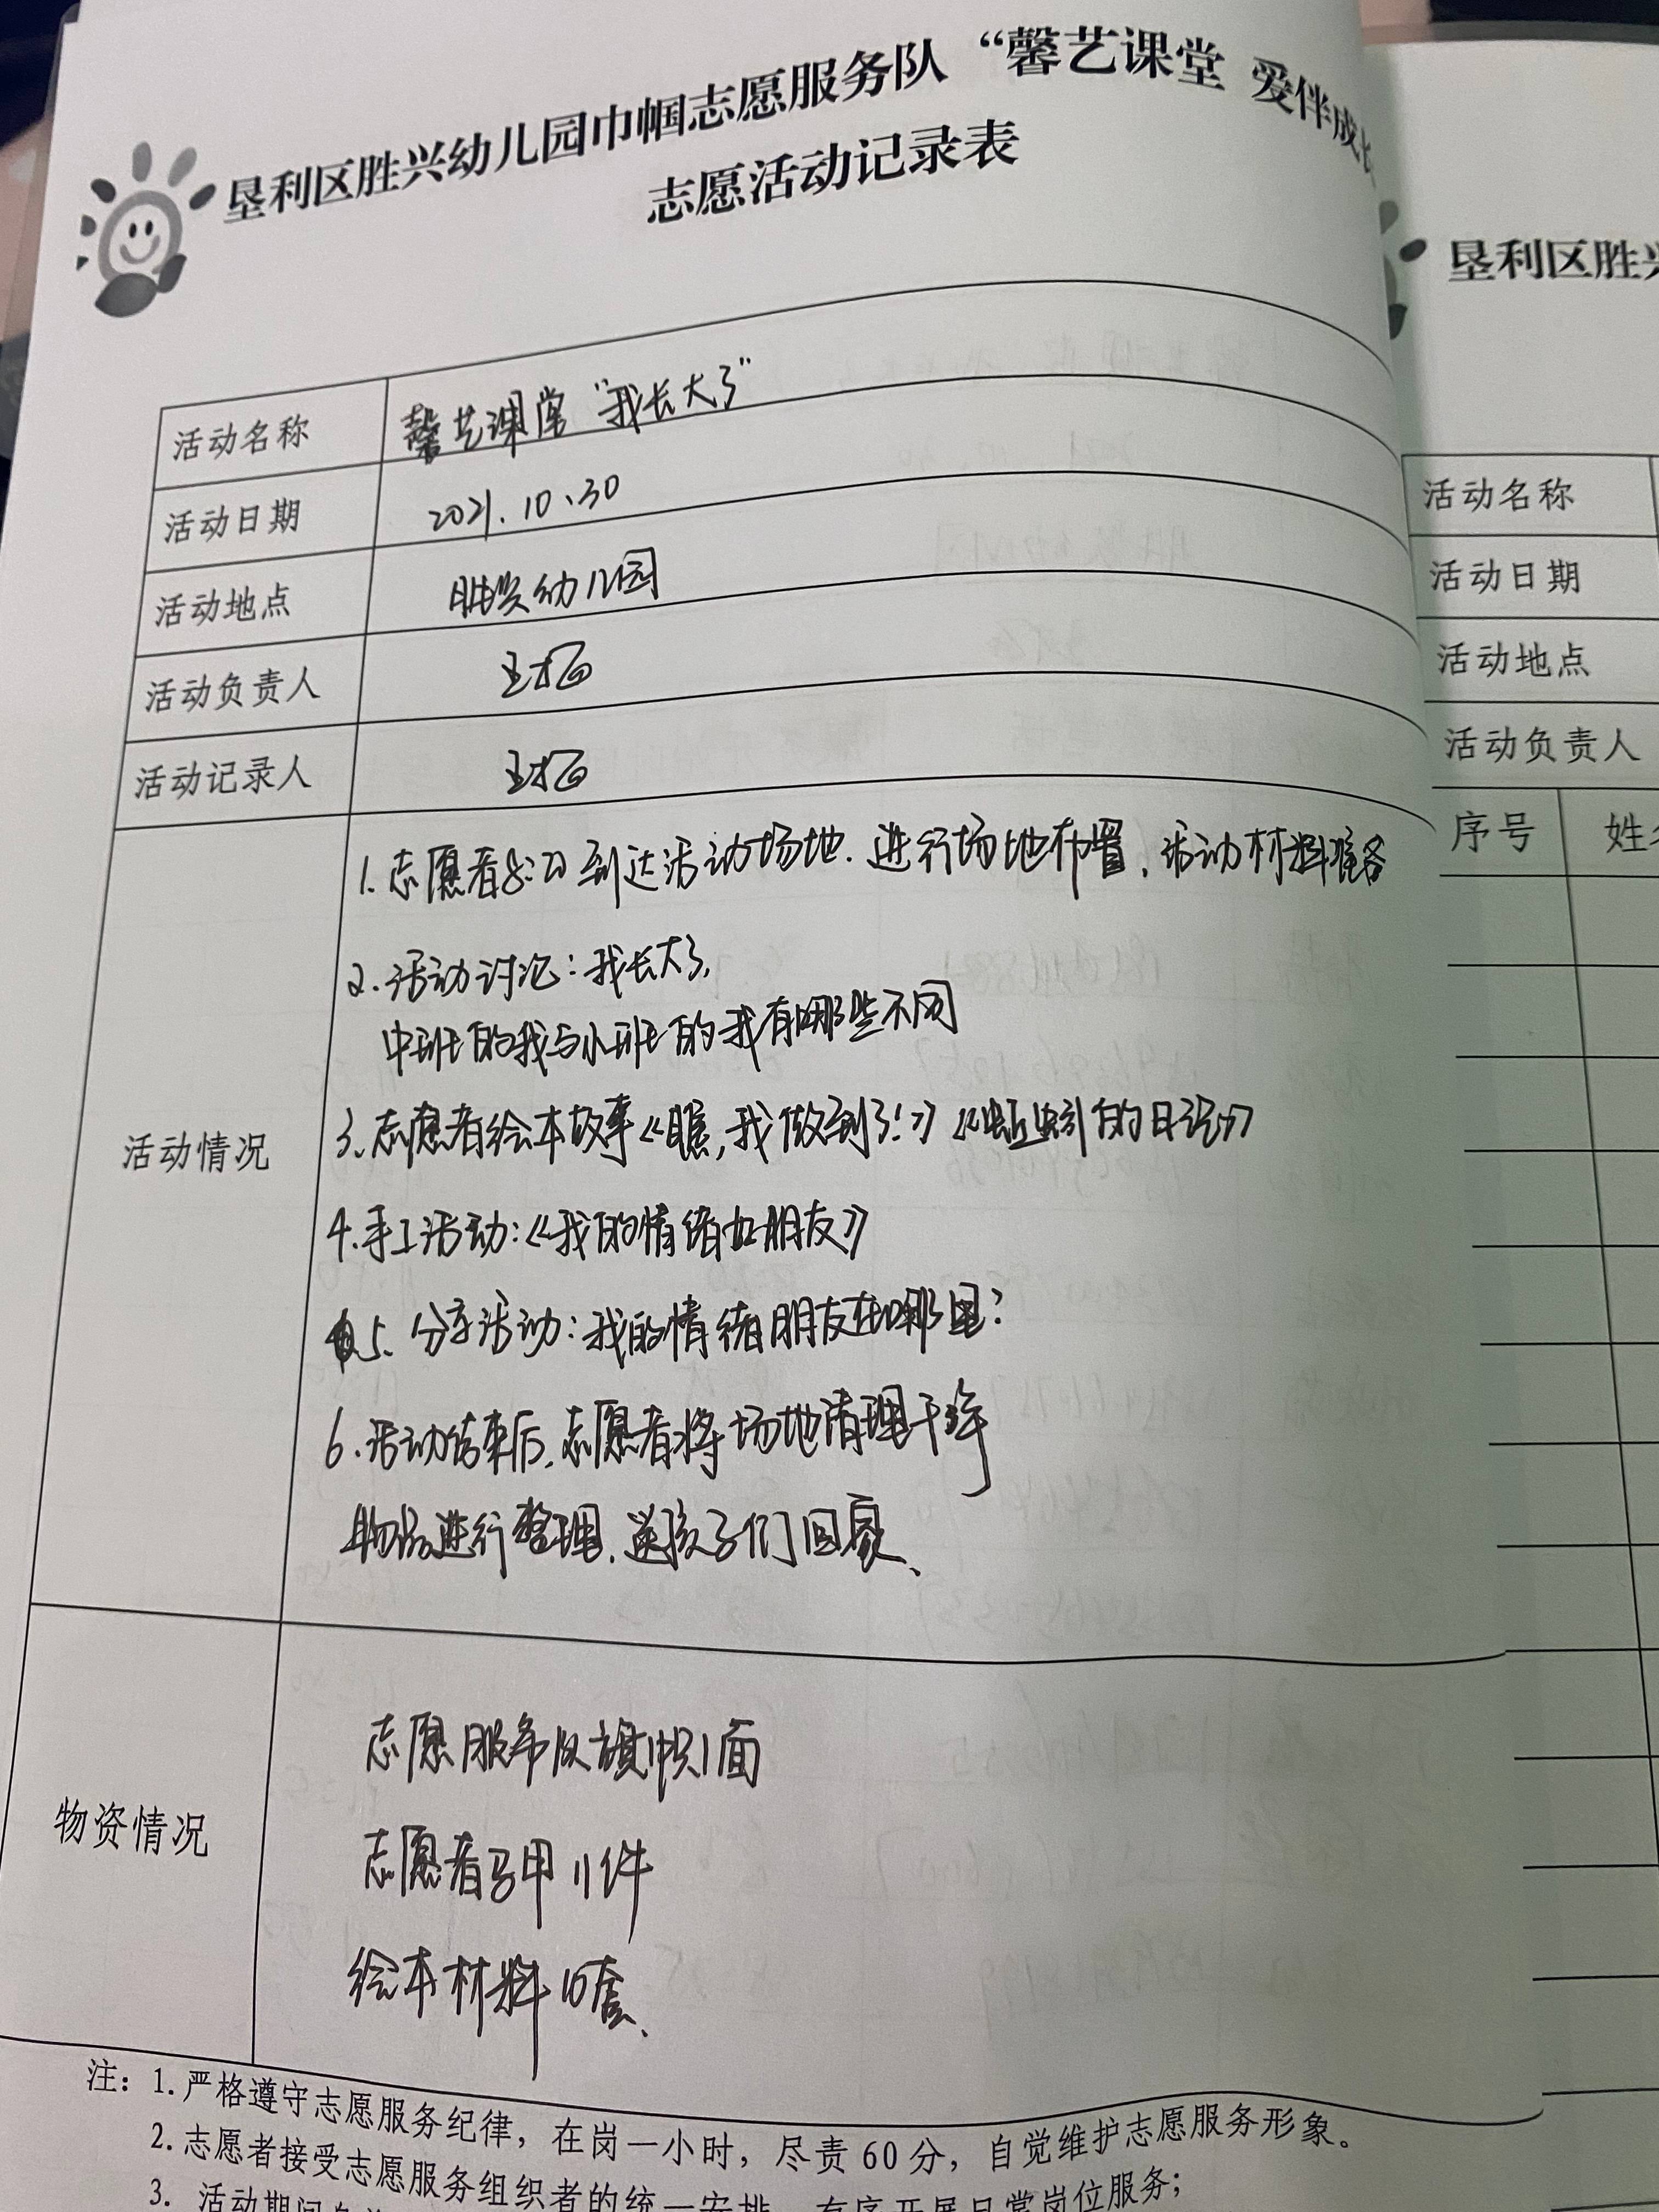 垦利区胜兴幼儿园巾帼志愿服务队“馨艺课堂 爱伴成长
志愿活动记录表
活动名称 馨艺课堂“我长大了”
活动日期 2021.10、30
活动地点 胜兴幼儿园
活动负责人
活动记录人
活动情况
1.志愿者8:20到达活动场地.进行场地布置,活动材料准备
2.活动讨论:我长大了,
中班的我与小班的我有哪些不同
3、志愿者绘本故事《瞧,我做到了!》《蚯蚓的日记》
4.手工活动:《我的情绪好朋友》
5、分享活动:我的情绪朋友在哪里?
6.活动结束后,志愿者将场地清理干净
物品进行整理,送孩子们回家、
物资情况
志愿服务队旗帜1面
志愿者马甲11件
绘本材料10套、
注:1.严格遵守志愿服务纪律,在岗一小时,尽责60分,自觉维护志愿服务形象。
2.志愿者接受志愿服务组织者的统一安排,有序开展日常岗位服务;
3.活动期间
垦利区胜兴
活动名称
活动日期
活动地点
活动负责人
序号 姓名